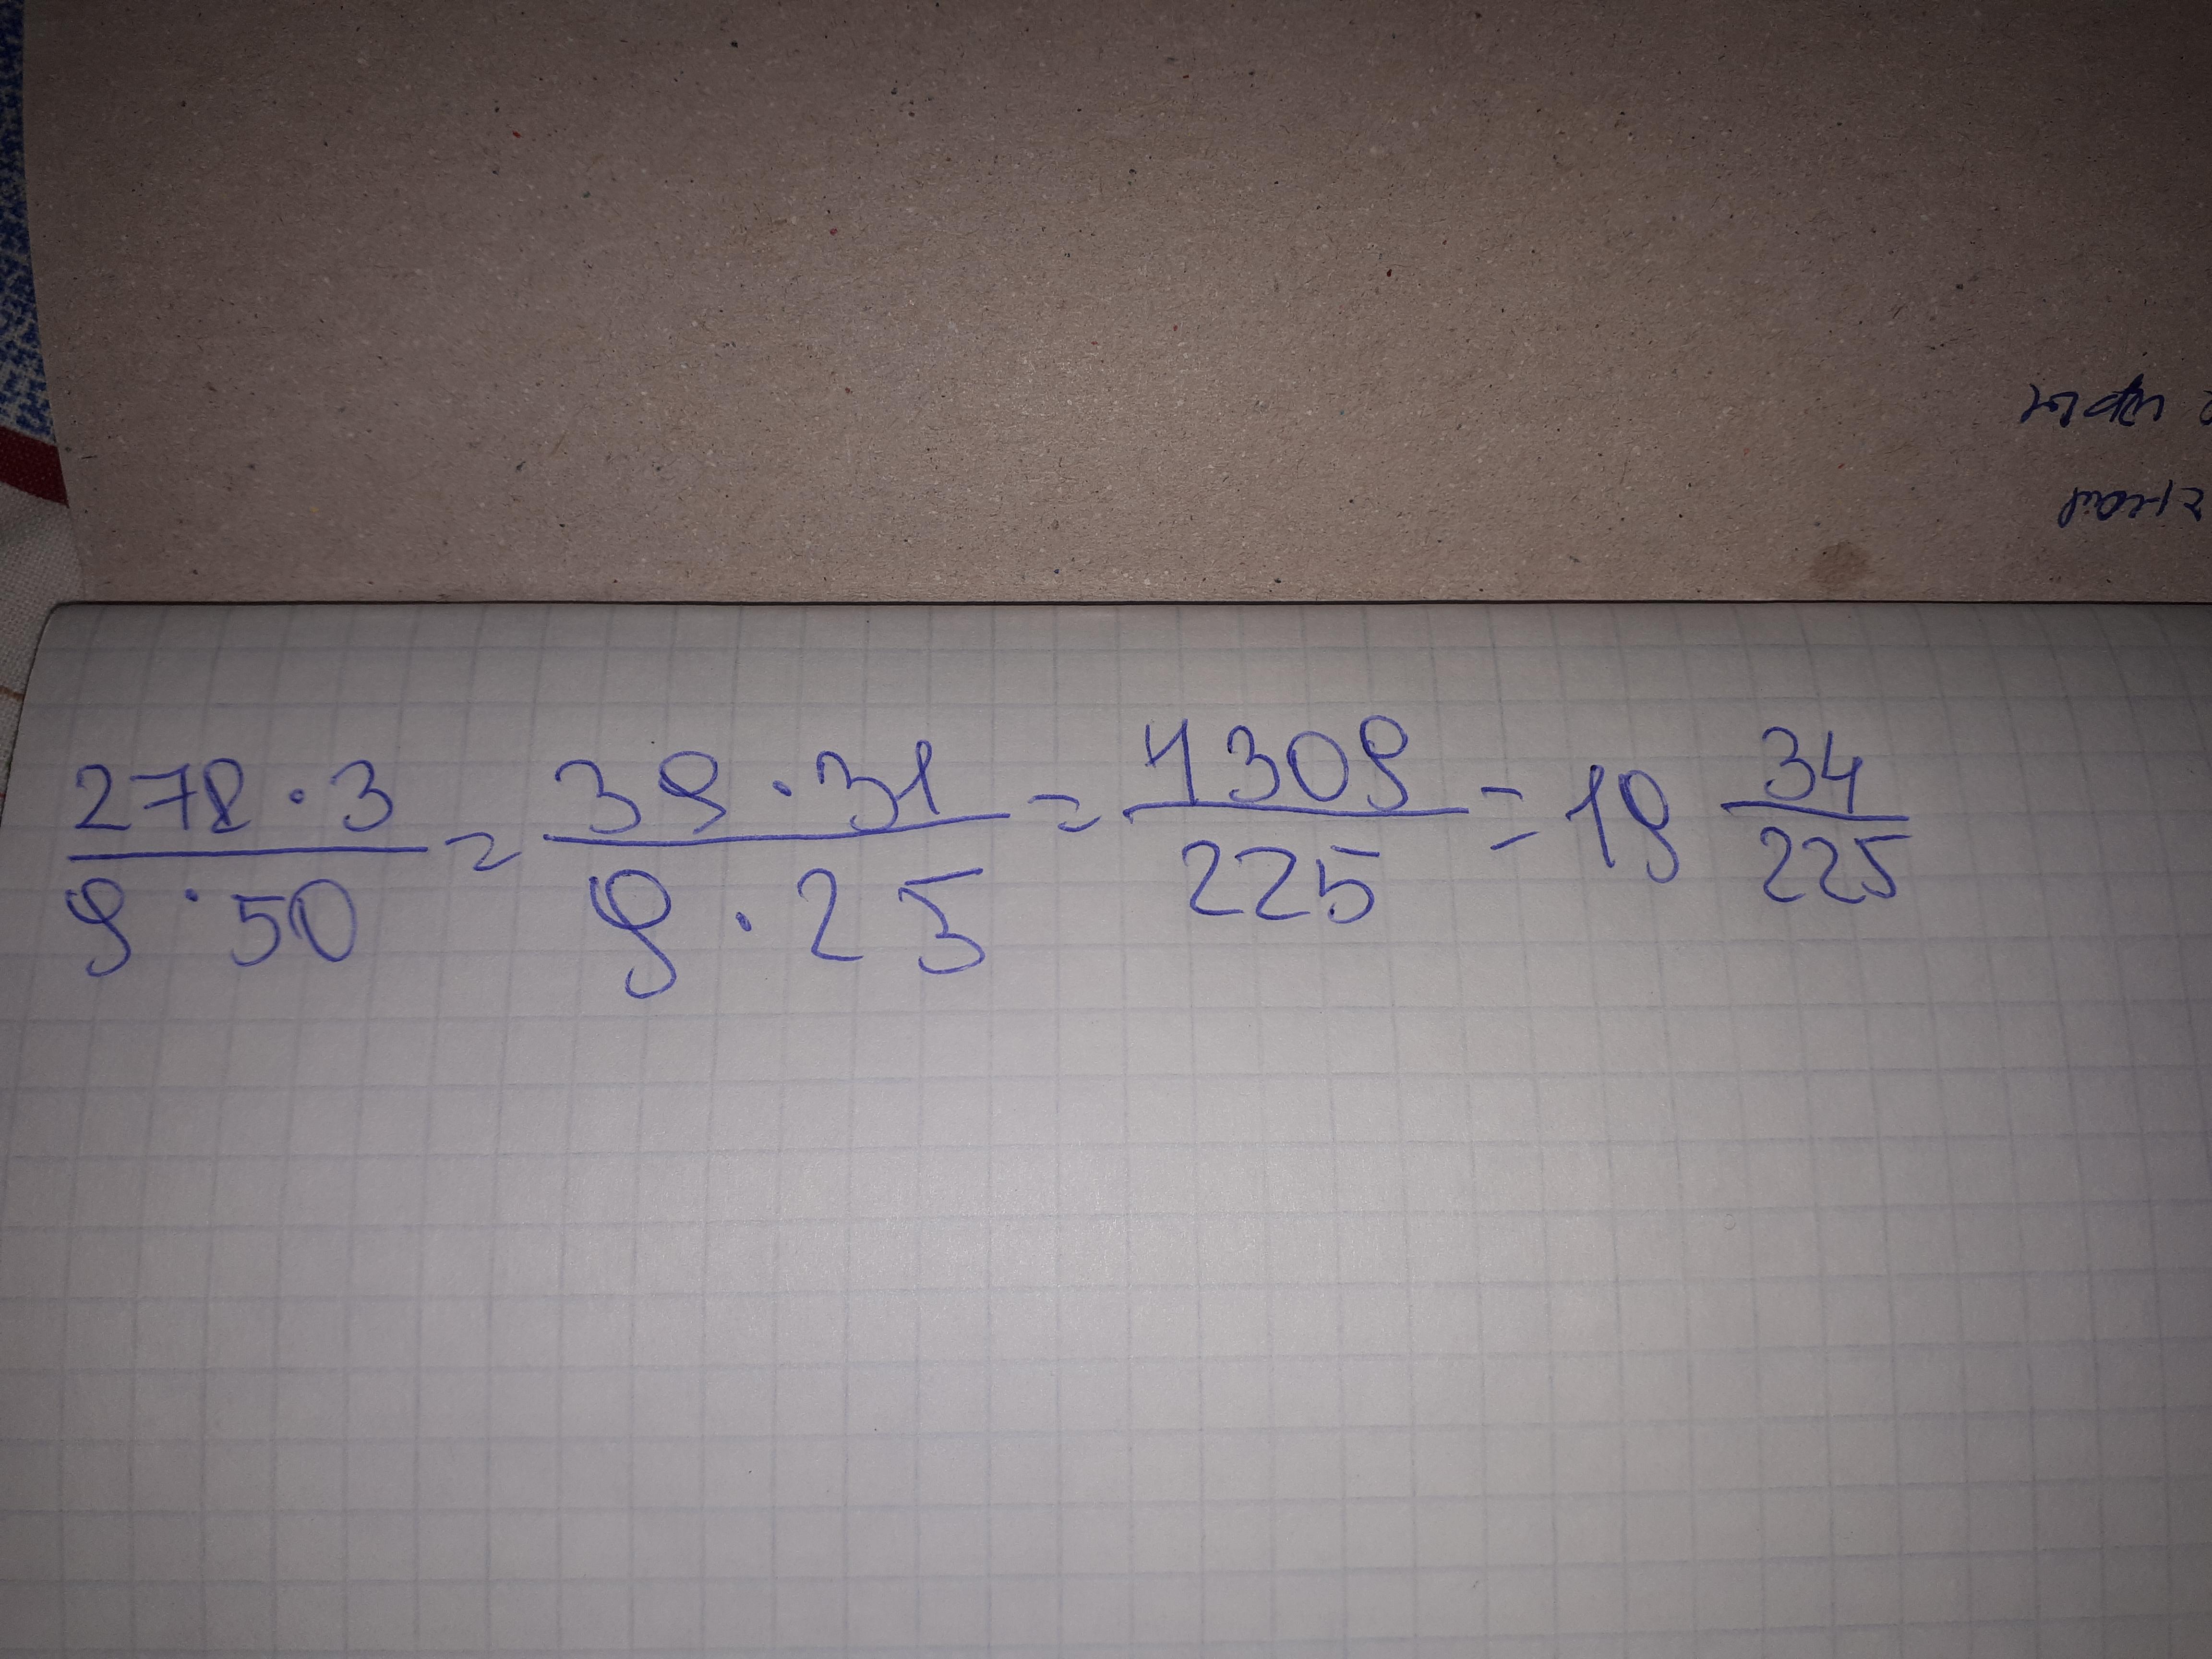 278·3/9·50 = 39·31/9·25 = 4309/225 = 19 34/225